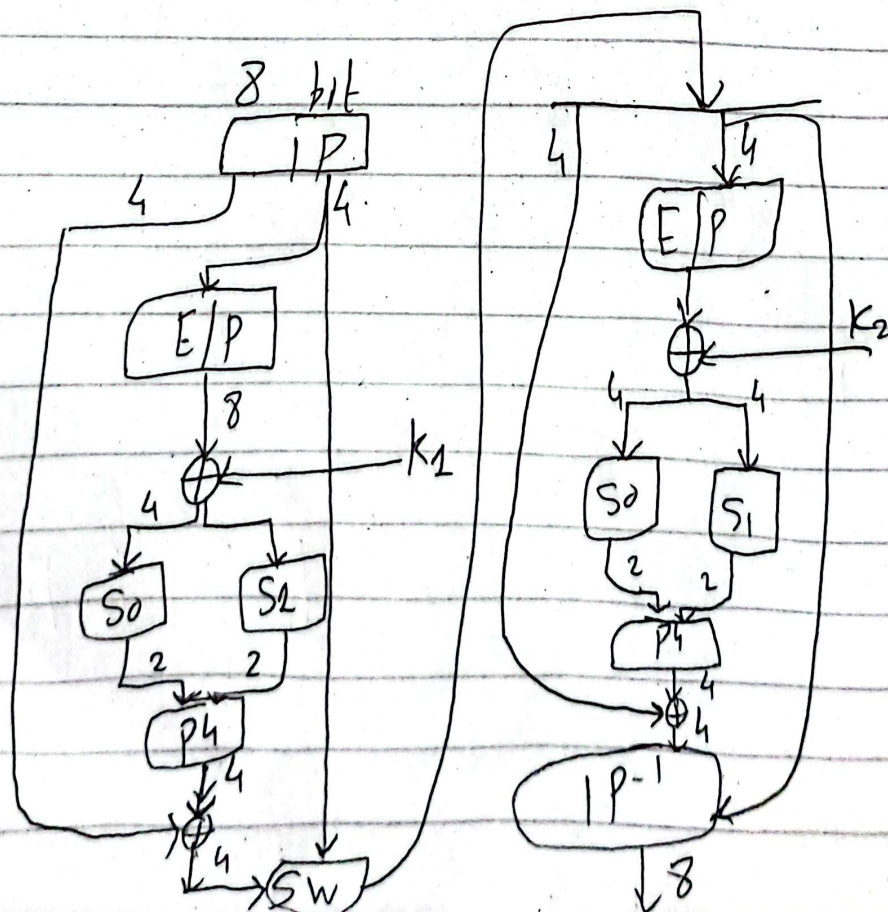 8 bit
IP
4
4
E/P
8
K1
4
S0
S1
2
2
P4
4
4
SW
4
4
E/P
K2
4
4
S0
S1
2
2
P4
4
4
IP-1
8